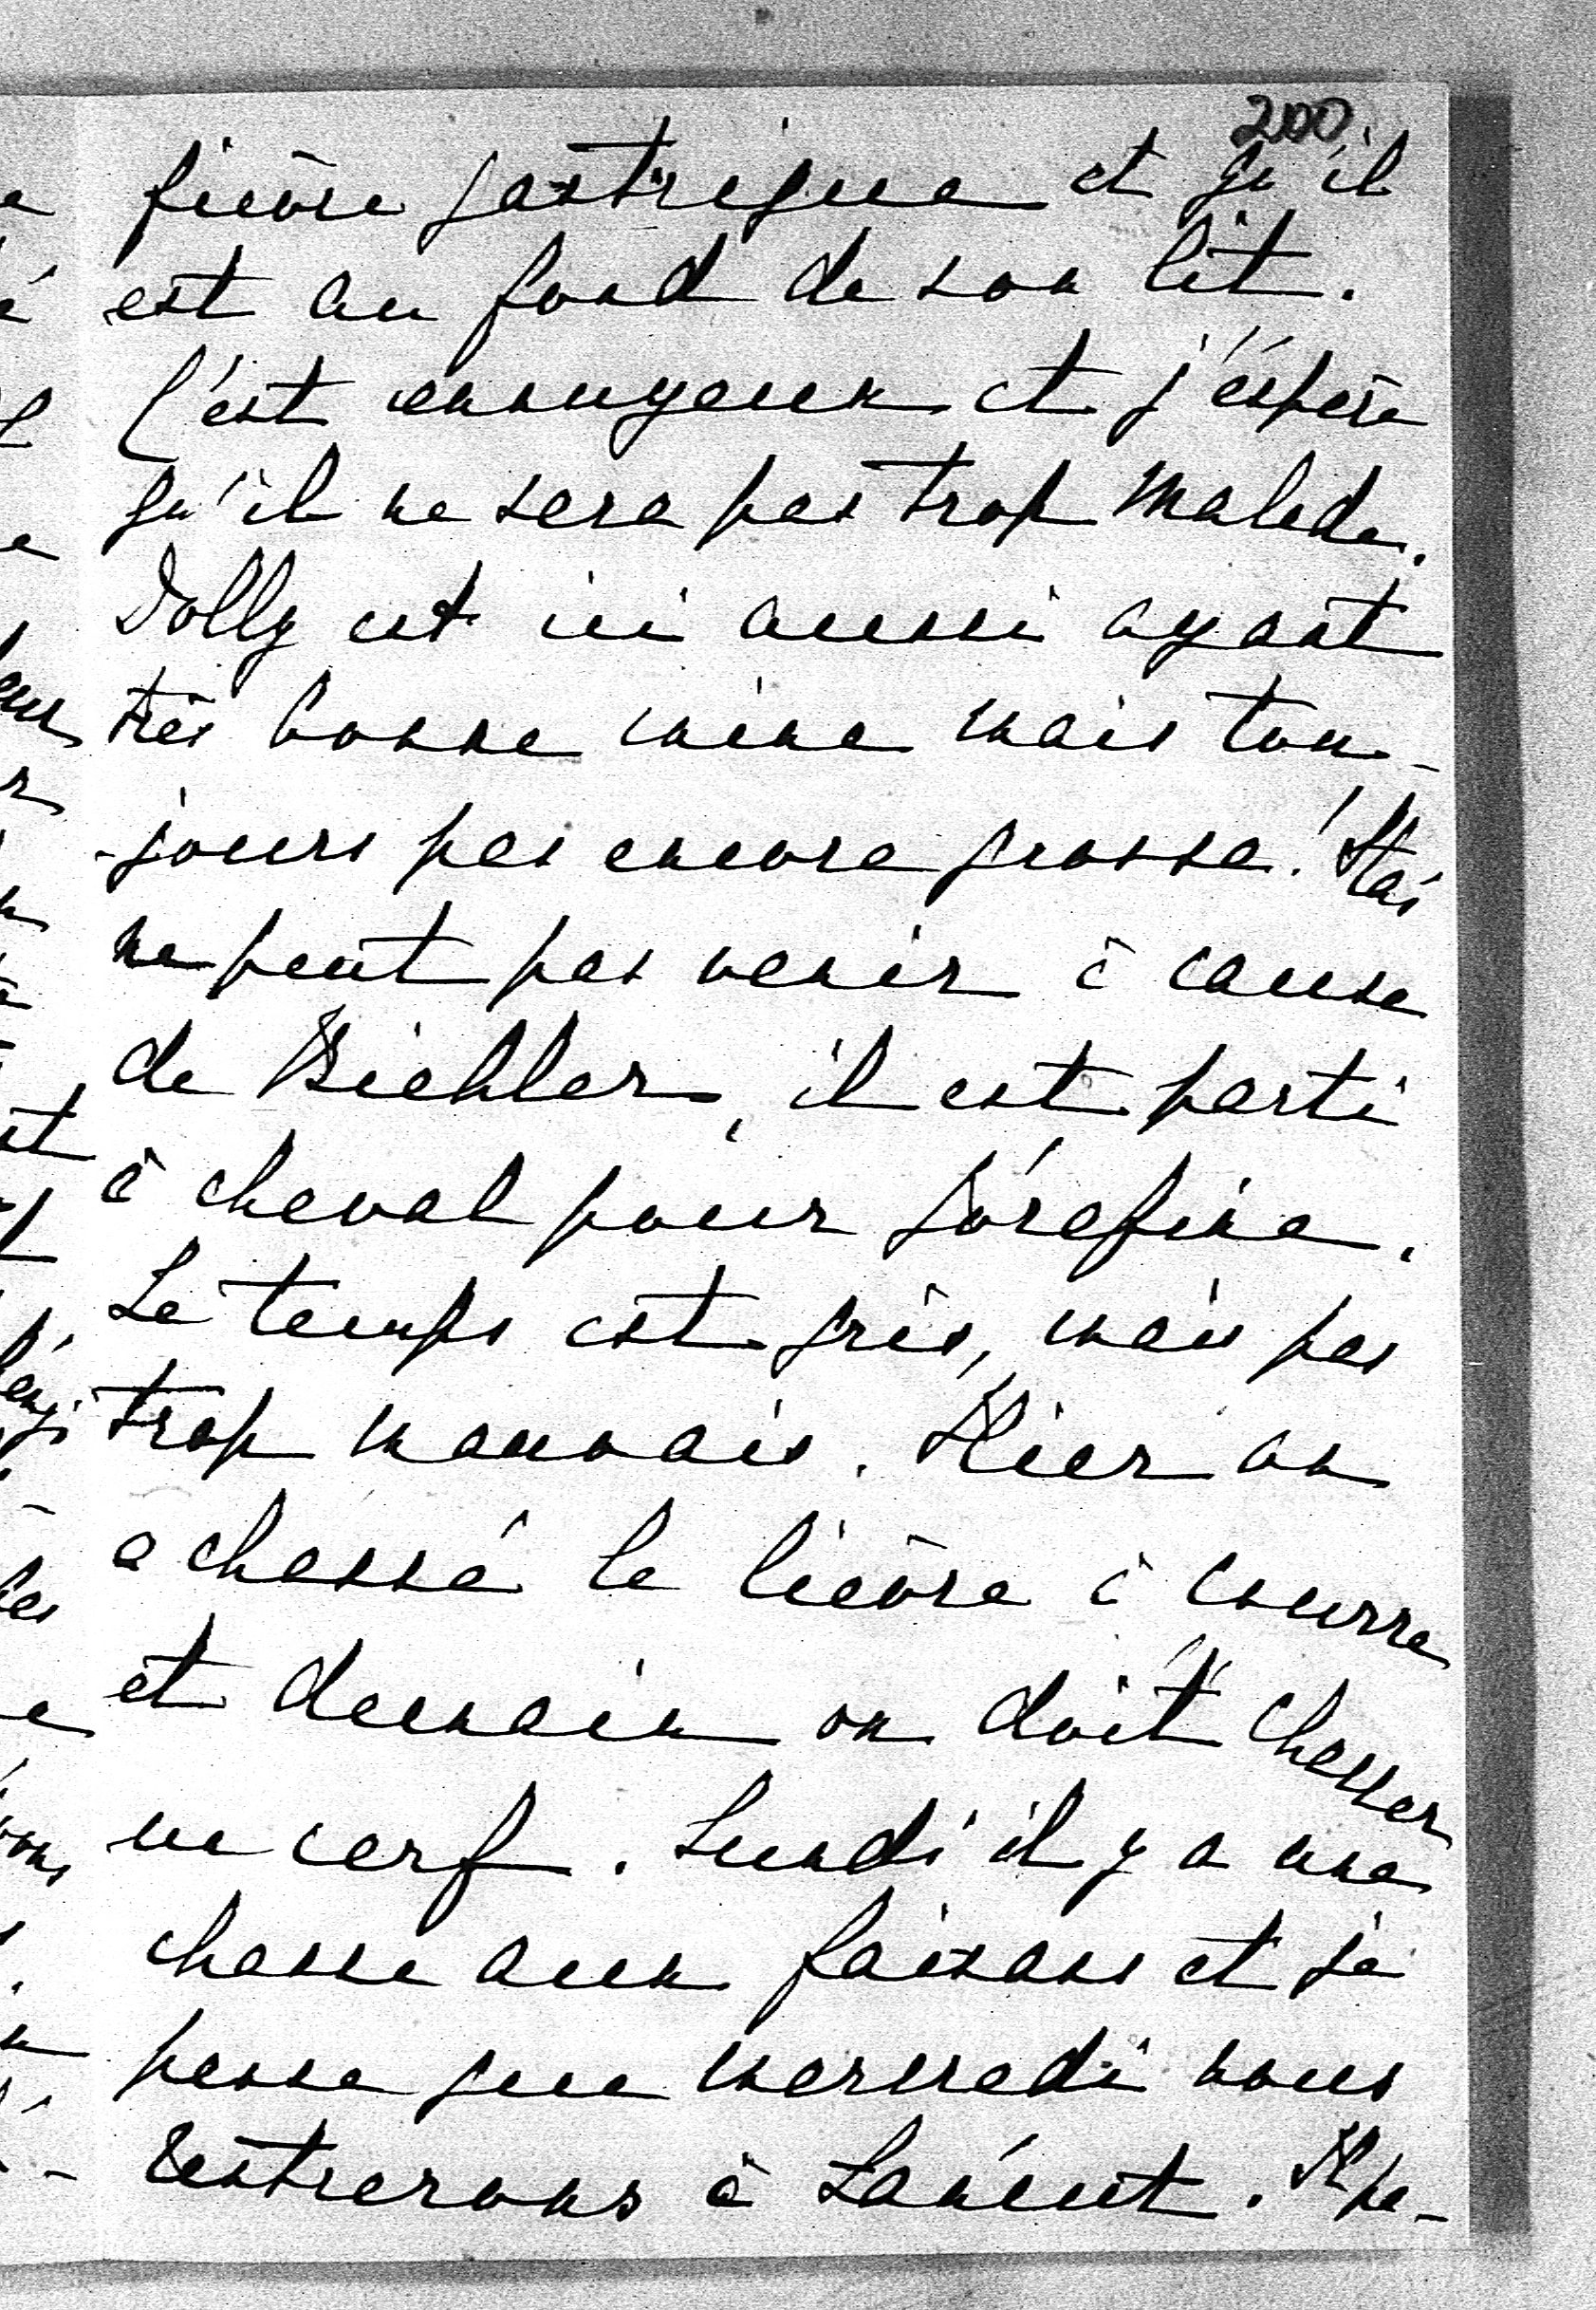 200
fièvre gastrique et qu'il
est au fond de son lit.
C'est ennuyeux et j'éspère
qu'il ne sera pas trop malade.
Dolly est ici aussi ayant
très bonne mine mais tou-
-jours pas encore grosse!
ne peut pas venir à cause
de Biehler, il est parti
à cheval pour
Le temps est gris, mais pas
trop mauvais. Hier on
a chassé le lièvre à courre
et demain on doit chasser
un cerf. Lundi il y a une
chasse aux faisans et je
pense que mercredi nous
rentrerons à Lancut.